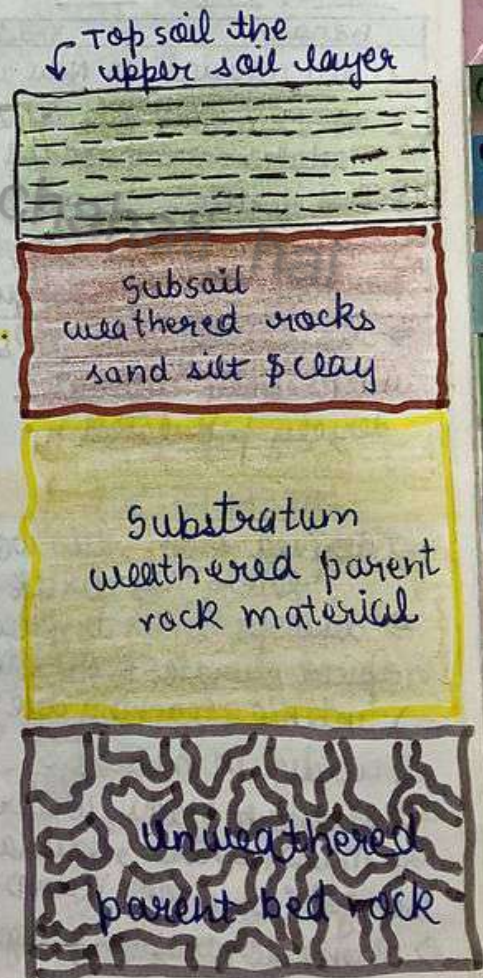 Top soil the
upper soil layer
Subsoil
weathered rocks
sand silt & clay
Substratum
weathered parent
rock material
Unweathered
parent bed rock